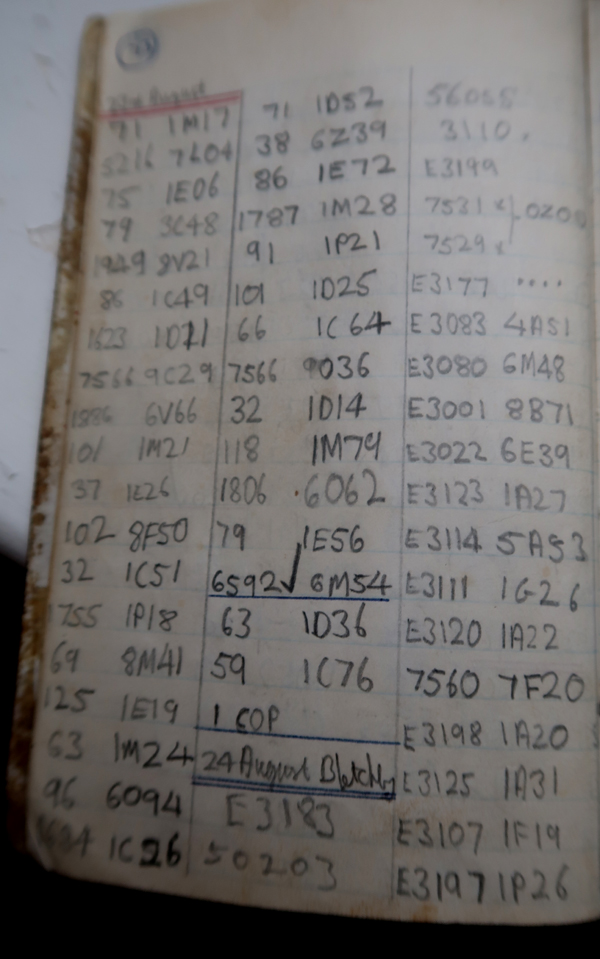 71 1M17
5216 7604
75 1E06
79 3C48
1949 8V21
86 1C49
1623 1D21
7566 9C29
6V66
101 1M21
37 1E26
102 8F50
32 1C51
755 1P18
69 8M41
125 1E19
63 1M24
96 6094
1C26
71 1D52
38 6Z39
86 1E72
1787 1M28
91 1P21
101 1D25
66 1C64
7566 9036
32 1D14
118 1M79
1806 6062
79 1E56
6592✓ 6M54
63 1D36
59 1C76
1 COP
24 August Bletchley
E3183
50203
3110.
E3199
7531 x } 0Z00
7529 x
E3177 ....
E3083 4A51
E3080 6M48
E3001 8B71
E3022 6E39
E3123 1A27
E3114 5A53
E3111 1G26
E3120 1A22
7560 7F20
E3198 1A20
E3125 1A31
E3107 1F19
E3197 1P26